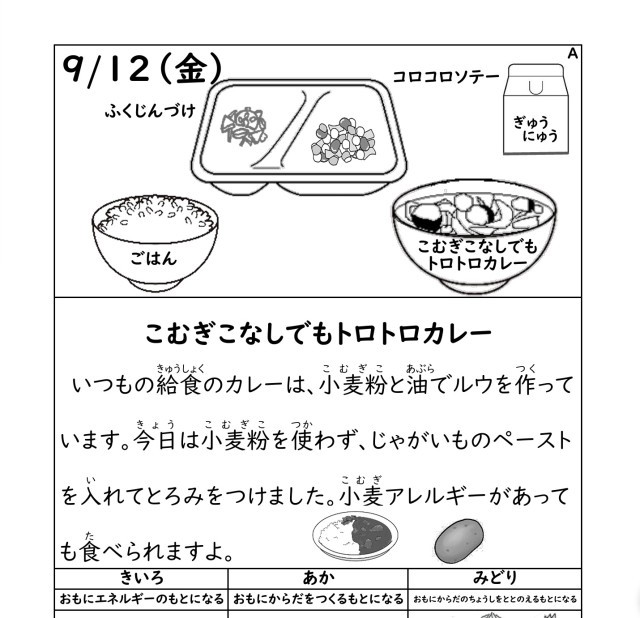 9/12(金)
A
コロコロソテー
ふくじんづけ
ぎゅう
にゅう
ごはん
こむぎこなしでも
トロトロカレー
こむぎこなしでもトロトロカレー
きゅうしょく こむぎこ あぶら つく
いつもの給食のカレーは、小麦粉と油でルウを作って
きょう こむぎこ つか
います。今日は小麦粉を使わず、じゃがいものペースト
い こむぎ
を入れてとろみをつけました。小麦アレルギーがあって
た
も食べられますよ。
きいろ あか みどり
おもにエネルギーのもとになる おもにからだをつくるもとになる おもにからだのちょうしをととのえるもとになる